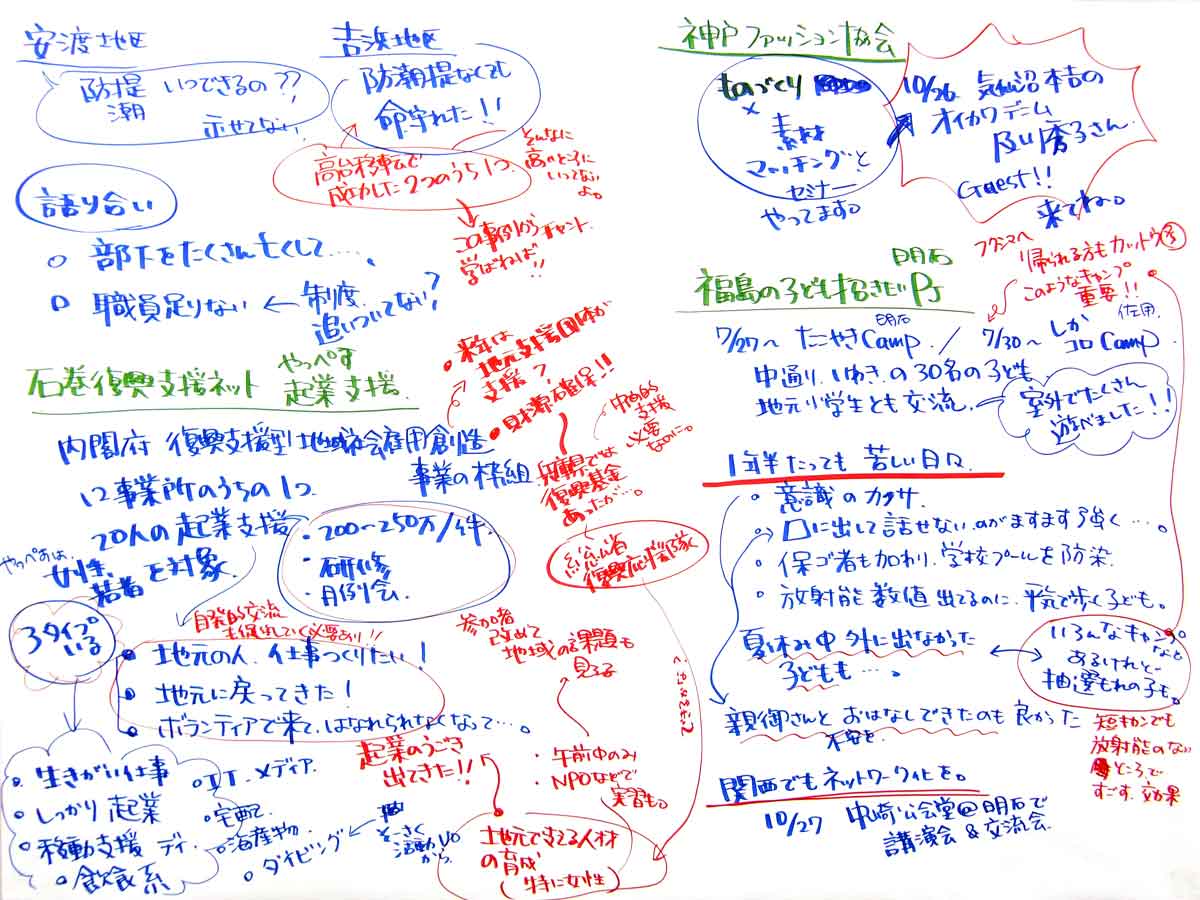 安渡地区
防潮堤 いつできるの??
示せてない
吉浜地区
防潮堤なくても
命守れた!!
高台移転で
成功した2つのうち1つ
そんなに
高いところに
いってない
よ。
この事例からチャント
学ばねば!!
語り合い
部下をたくさん亡くして……
職員足りない ← 制度
追いついてない?
石巻復興支援ネット
やっぺす
起業支援
内閣府 復興支援型地域社会雇用創造
事業の枠組
12事業所のうちの1つ
20人の起業支援
やっぺすは、
女性、
若者 を対象
・200~250万/件
・研修
・月例会
来年は
地元支援団体が
支援っ?
財源確保!!
中長期的
支援
必要
なのに。
兵庫県では
復興基金
あったが…。
総務省
復興応援隊
3タイプ
いる
自発的交流
も促していく必要あり!!
地元の人、仕事つくりたい!
地元に戻ってきた!
ボランティアで来て、はなれられなくなって…。
参加者
改めて
地域の課題も
見る
・午前中のみ
・NPOなどで
実習も。
起業のうごき
出てきた!!
地元で支える人材
の育成
(特に女性)
生きがい仕事
しっかり起業
移動支援
飲食系
IT・メディア
宅配
海産物
ダイビング
そーさく
活動NPO
から
神戸ファッション協会
ものづくり
×
素材
マッチングと
セミナー
やってます。
10/26 気仙沼本吉の
オイカワデニム
及川秀子さん
Guest!!
来てね。
明石
福島の子ども招きたいPJ
フクシマへ
帰られる方もカットウ
このようなキャンプ
重要!!
7/27~ たこやきCamp / 7/30~ しかコロCamp
明石
佐用
中通り、いわきの30名の子ども
地元小学生とも交流
室外でたくさん
遊べました!!
1年半たっても 苦しい日々
・意識のカクサ
・口に出して話せない、のがますます強く…。
・保ゴ者も加わり、学校プールを防染
・放射能数値 出てるのに、平気で歩く子ども。
夏休み中 外に出なかった
子どもも…。
いろんなキャンプ
など
あるけれど
抽選もれの子も。
親御さんと おはなしできたのも良かった
不安を
短キカンでも
放射能のない
ところで
すごす効果
関西でもネットワーク化を。
10/27 中崎公会堂@明石で
講演会&交流会